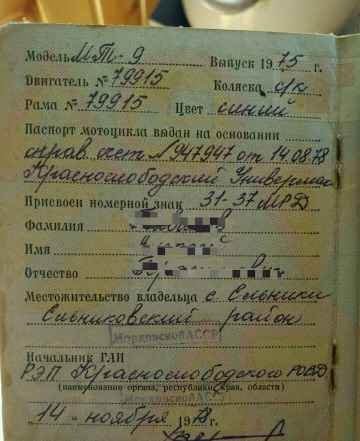 Модель МТ-9 Выпуск 1975 г.
Двигатель № 79915 Коляска б/к
Рама № 79915 Цвет синий
Паспорт мотоцикла выдан на основании
справ. счет №947947 от 14.08.78
Краснослободский Универмаг
Присвоен номерной знак 31-37 МРД
Фамилия
Имя
Отчество
Местожительство владельца с. Ельники
Ельниковский район
Начальник ГАИ
Мордовской АССР
РЭП Краснослободского РОВД
(наименование органа, республики, края, области)
Мордовской АССР
14 ноября 1978 г.